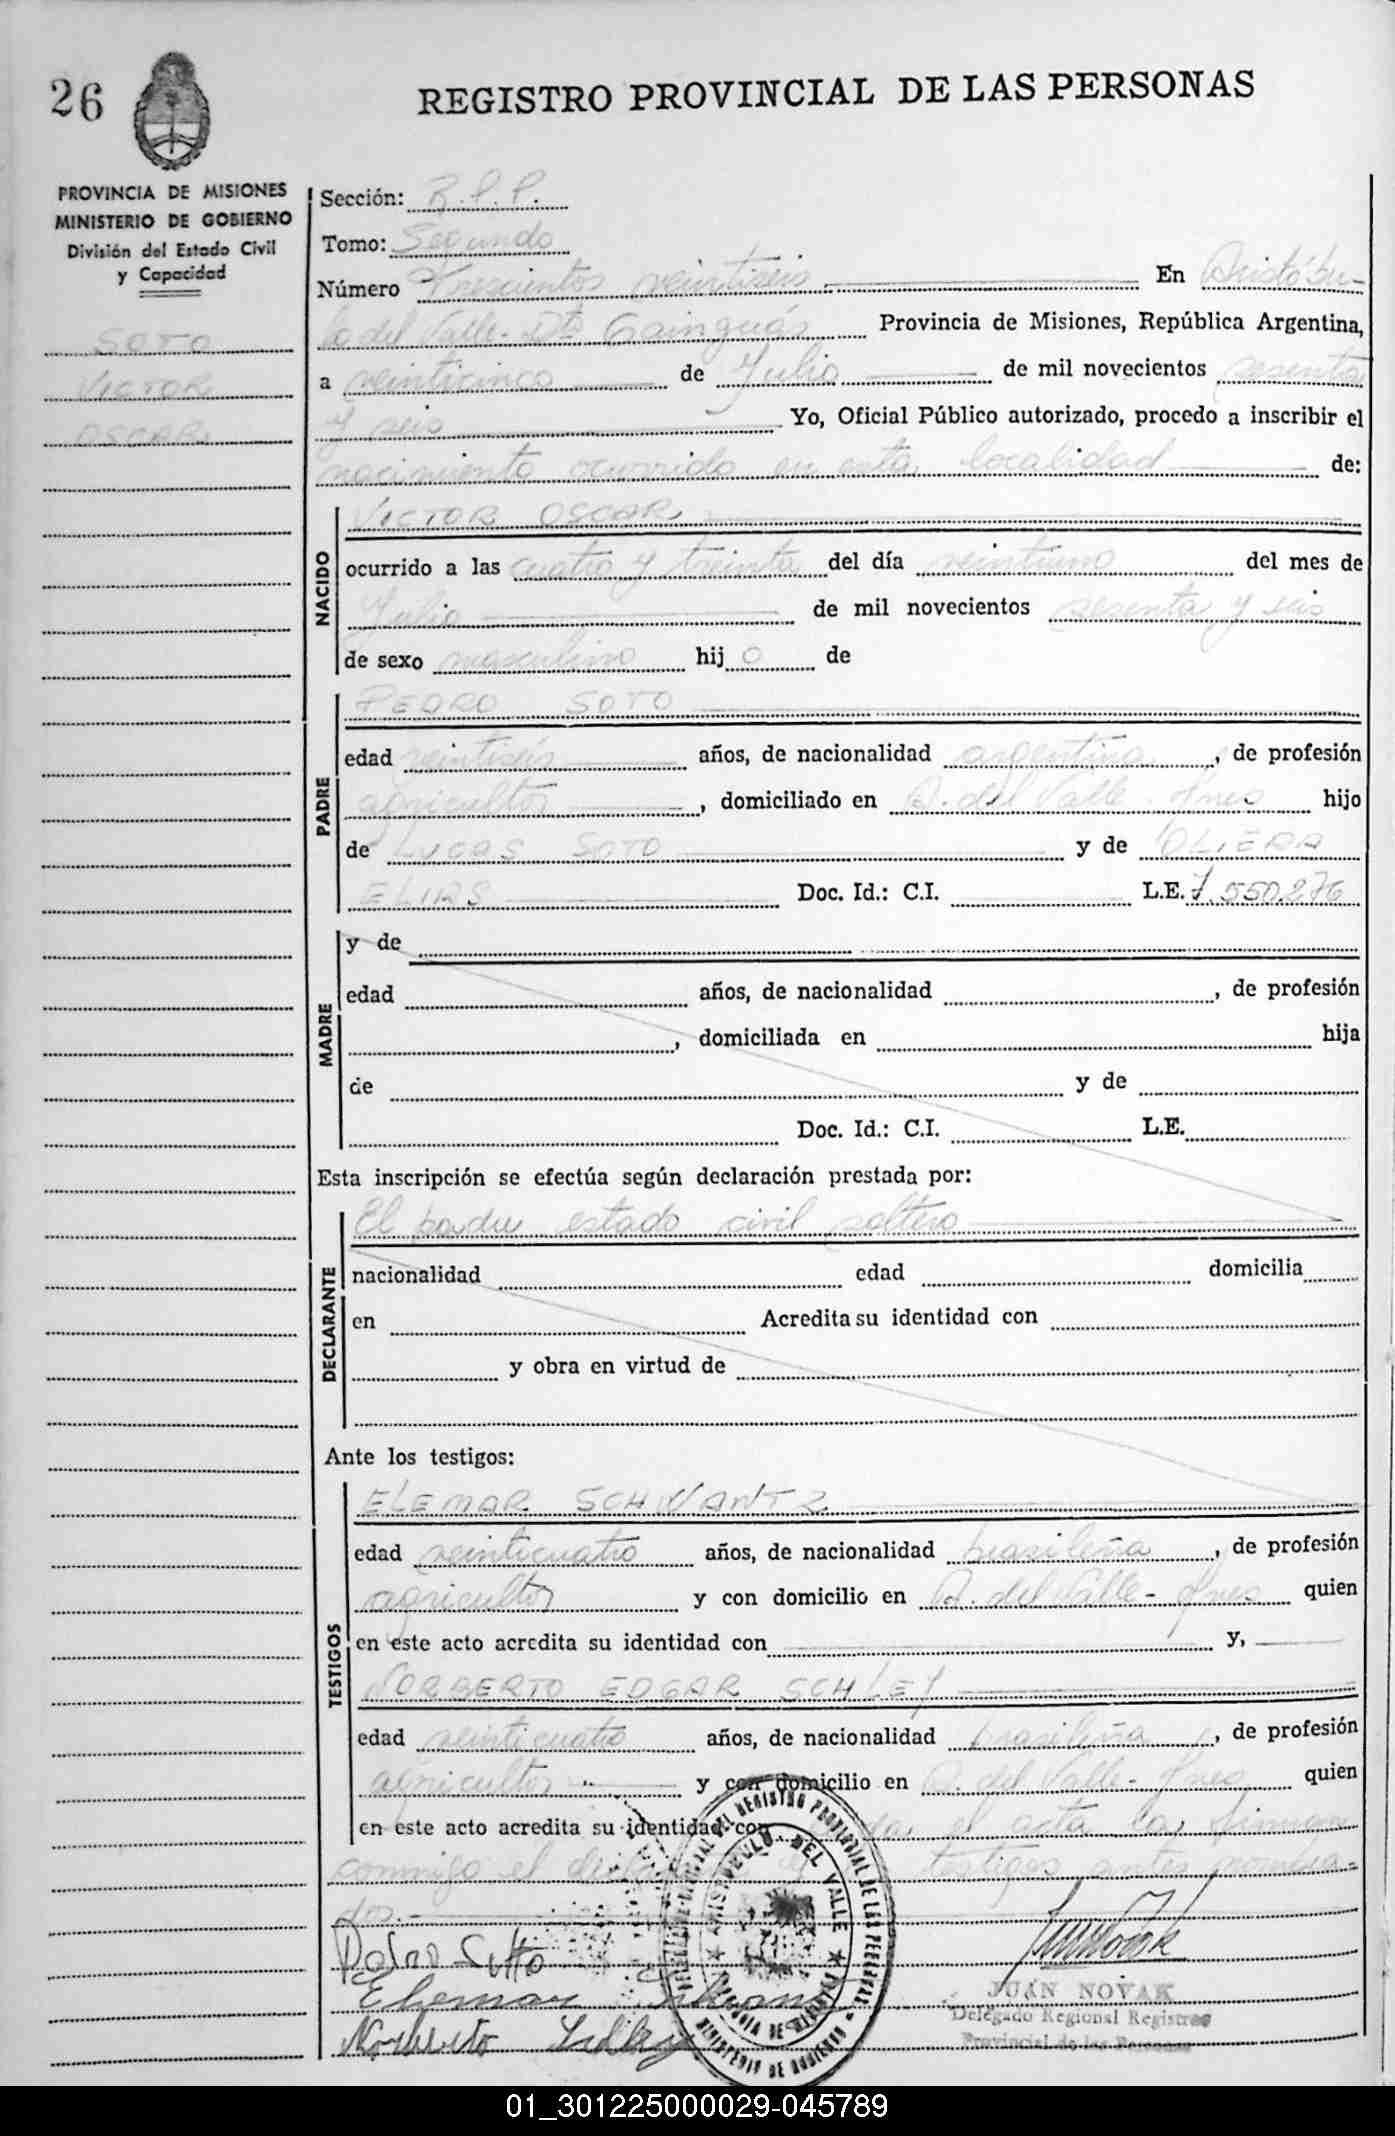 26
REGISTRO PROVINCIAL DE LAS PERSONAS
PROVINCIA DE MISIONES
MINISTERIO DE GOBIERNO
División del Estado Civil
y Capacidad
SOTO
VICTOR
OSCAR
Sección: R.P.P.
Tomo: Segundo
Número Trescientos veintiseis En Aristóbu-
lo del Valle - Dto Cainguás Provincia de Misiones, República Argentina,
a veinticinco de Julio de mil novecientos sesenta
y seis Yo, Oficial Público autorizado, procedo a inscribir el
nacimiento ocurrido en esta localidad de:
NACIDO
VICTOR OSCAR
ocurrido a las cuatro y treinta del día veintiuno del mes de
Julio de mil novecientos sesenta y seis
de sexo masculino hijo de
PADRE
PEDRO SOTO
edad veintiseis años, de nacionalidad argentina, de profesión
agricultor, domiciliado en A. del Valle - Mnes hijo
de LUCAS SOTO y de
ELIAS Doc. Id.: C.I. L.E. 7.550.276
MADRE
y de
edad años, de nacionalidad , de profesión
, domiciliada en hija
de y de
Doc. Id.: C.I. L.E.
Esta inscripción se efectúa según declaración prestada por:
DECLARANTE
El padre estado civil soltero
nacionalidad edad domicilia
en Acredita su identidad con
y obra en virtud de
Ante los testigos:
TESTIGOS
ELEMAR SCHWANTZ
edad veinticuatro años, de nacionalidad brasileña, de profesión
agricultor y con domicilio en A. del Valle - Mnes quien
en este acto acredita su identidad con y,
NORBERTO EDGAR SCHLEY
edad veinticuatro años, de nacionalidad brasileña, de profesión
agricultor y con domicilio en A. del Valle - Mnes quien
en este acto acredita su identidad con el acta la firman
conmigo el testigos antes nombra-
dos.
Pedro Sotto
Norberto
ARISTOBULO DEL VALLE
MINISTERIO DE GOBIERNO
JUAN NOVAK
Delegado Regional Registro
Provincial de las Personas
01_301225000029-045789